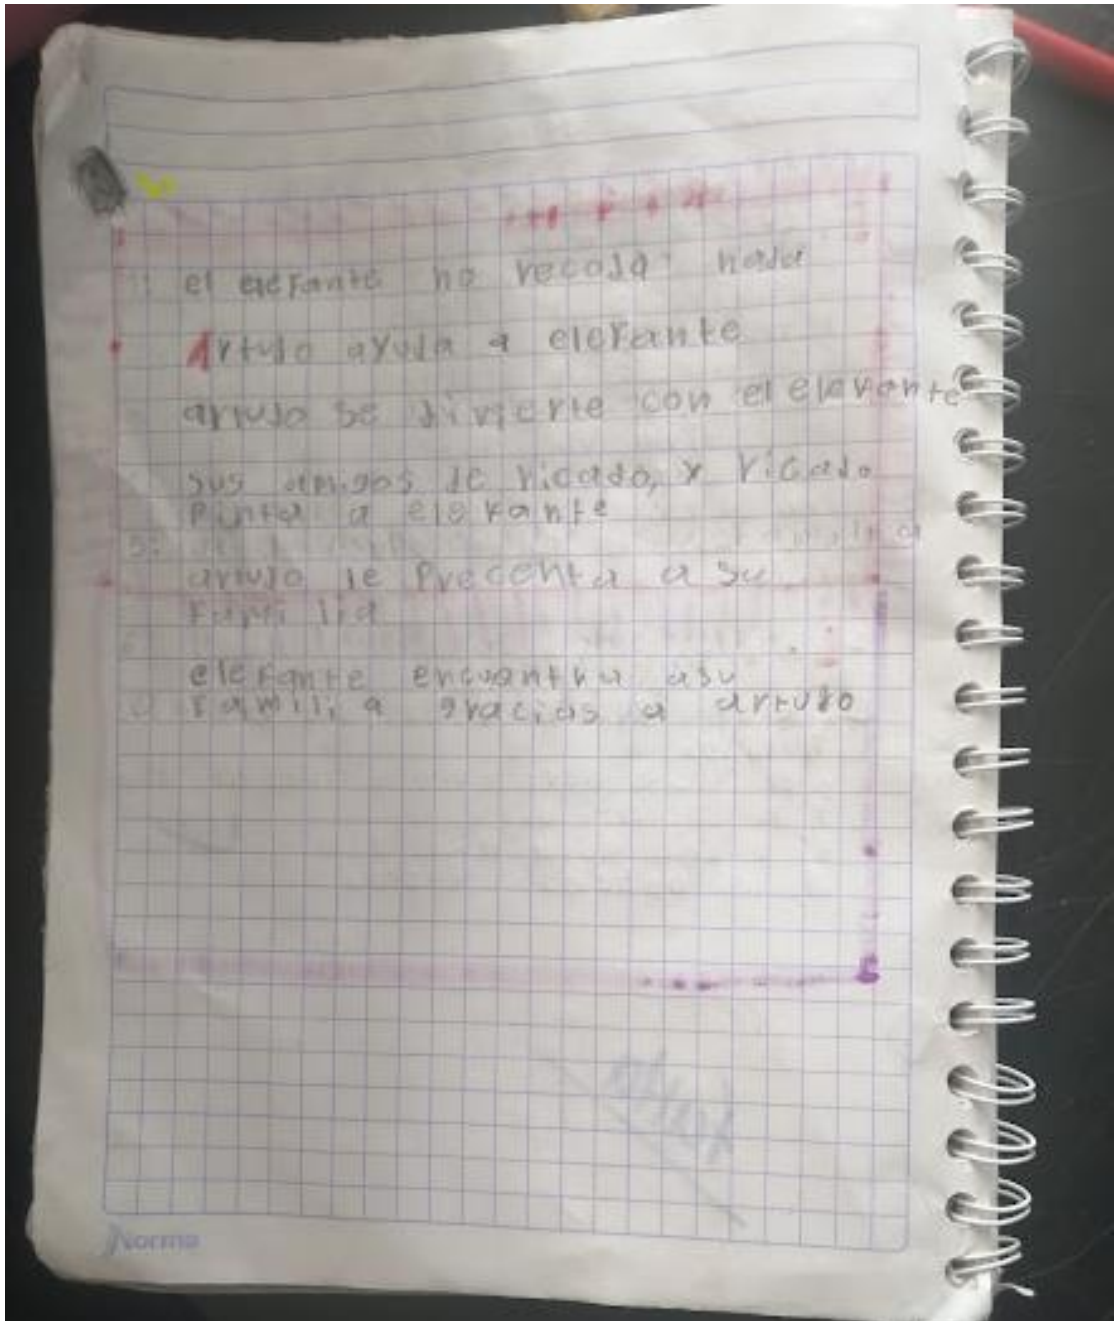 el elefante no recoda nada
Artuto ayuda a elefante
artuto se divierte con el elevante
sus amigos de ricado, y ricado
Pinta a elefante
artuto le Precenta a su
Familia
elefante encuentra asu
Familia gracias a artuto
Norma